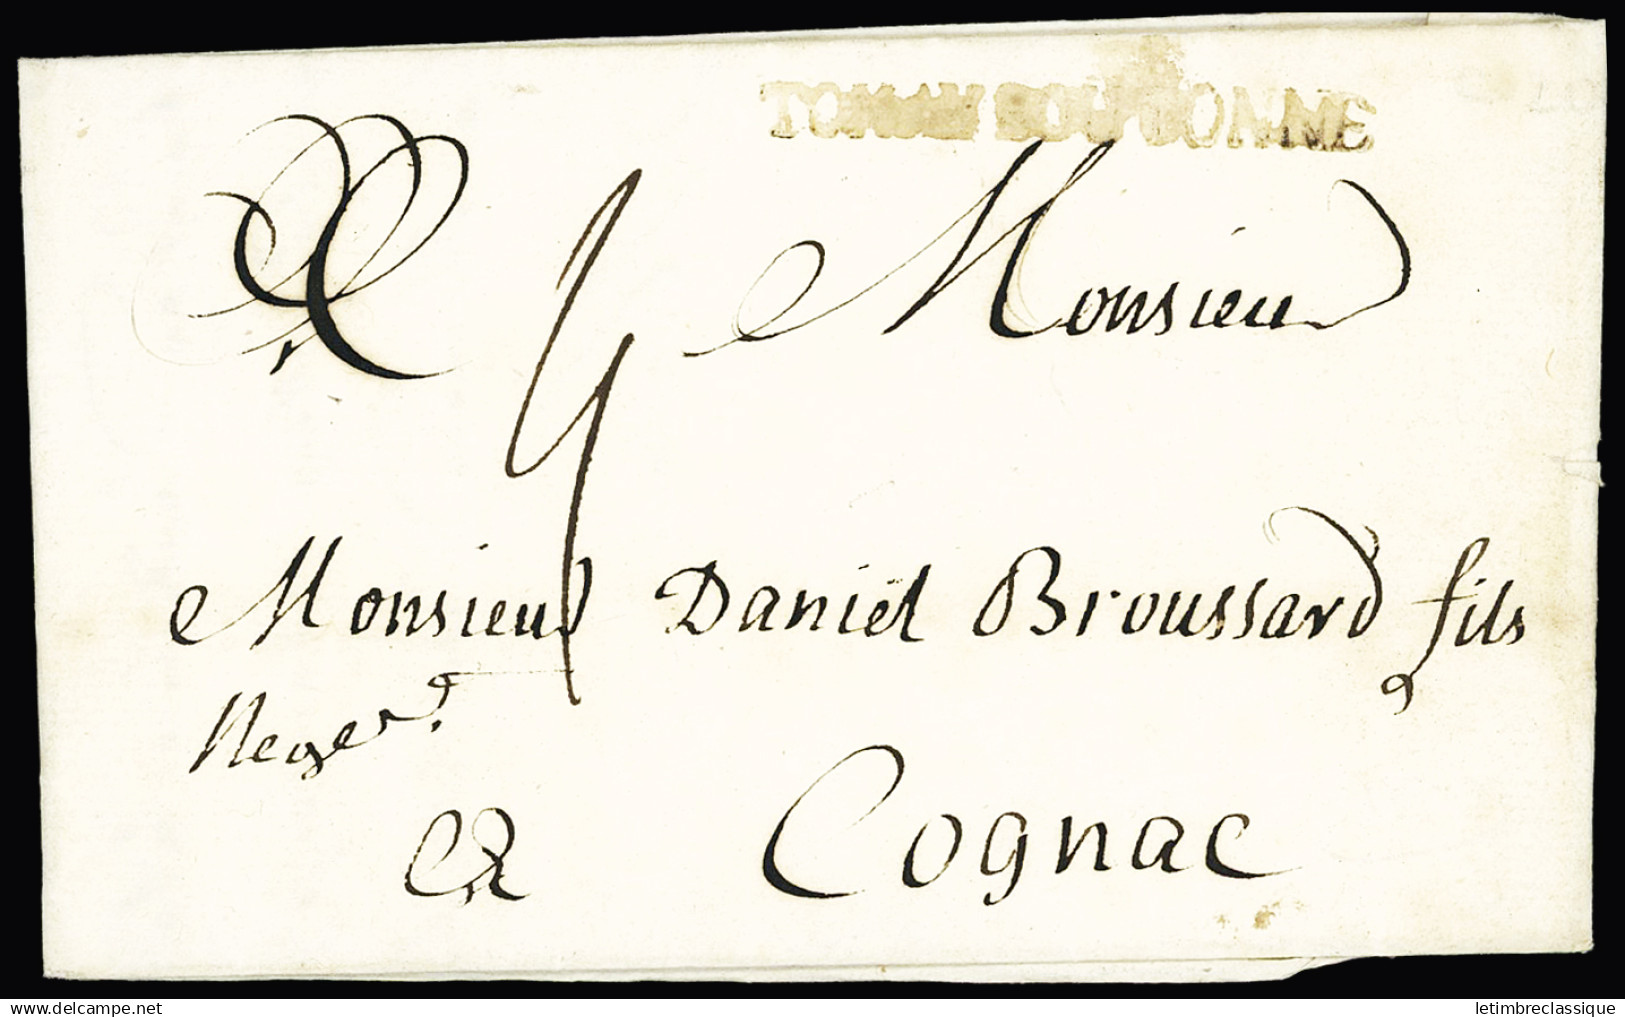 TONNAY BOUTONNE
4
Monsieur
Monsieur Daniel Broussard fils
Negt.
A Cognac
delcampe.net
letimbreclassique